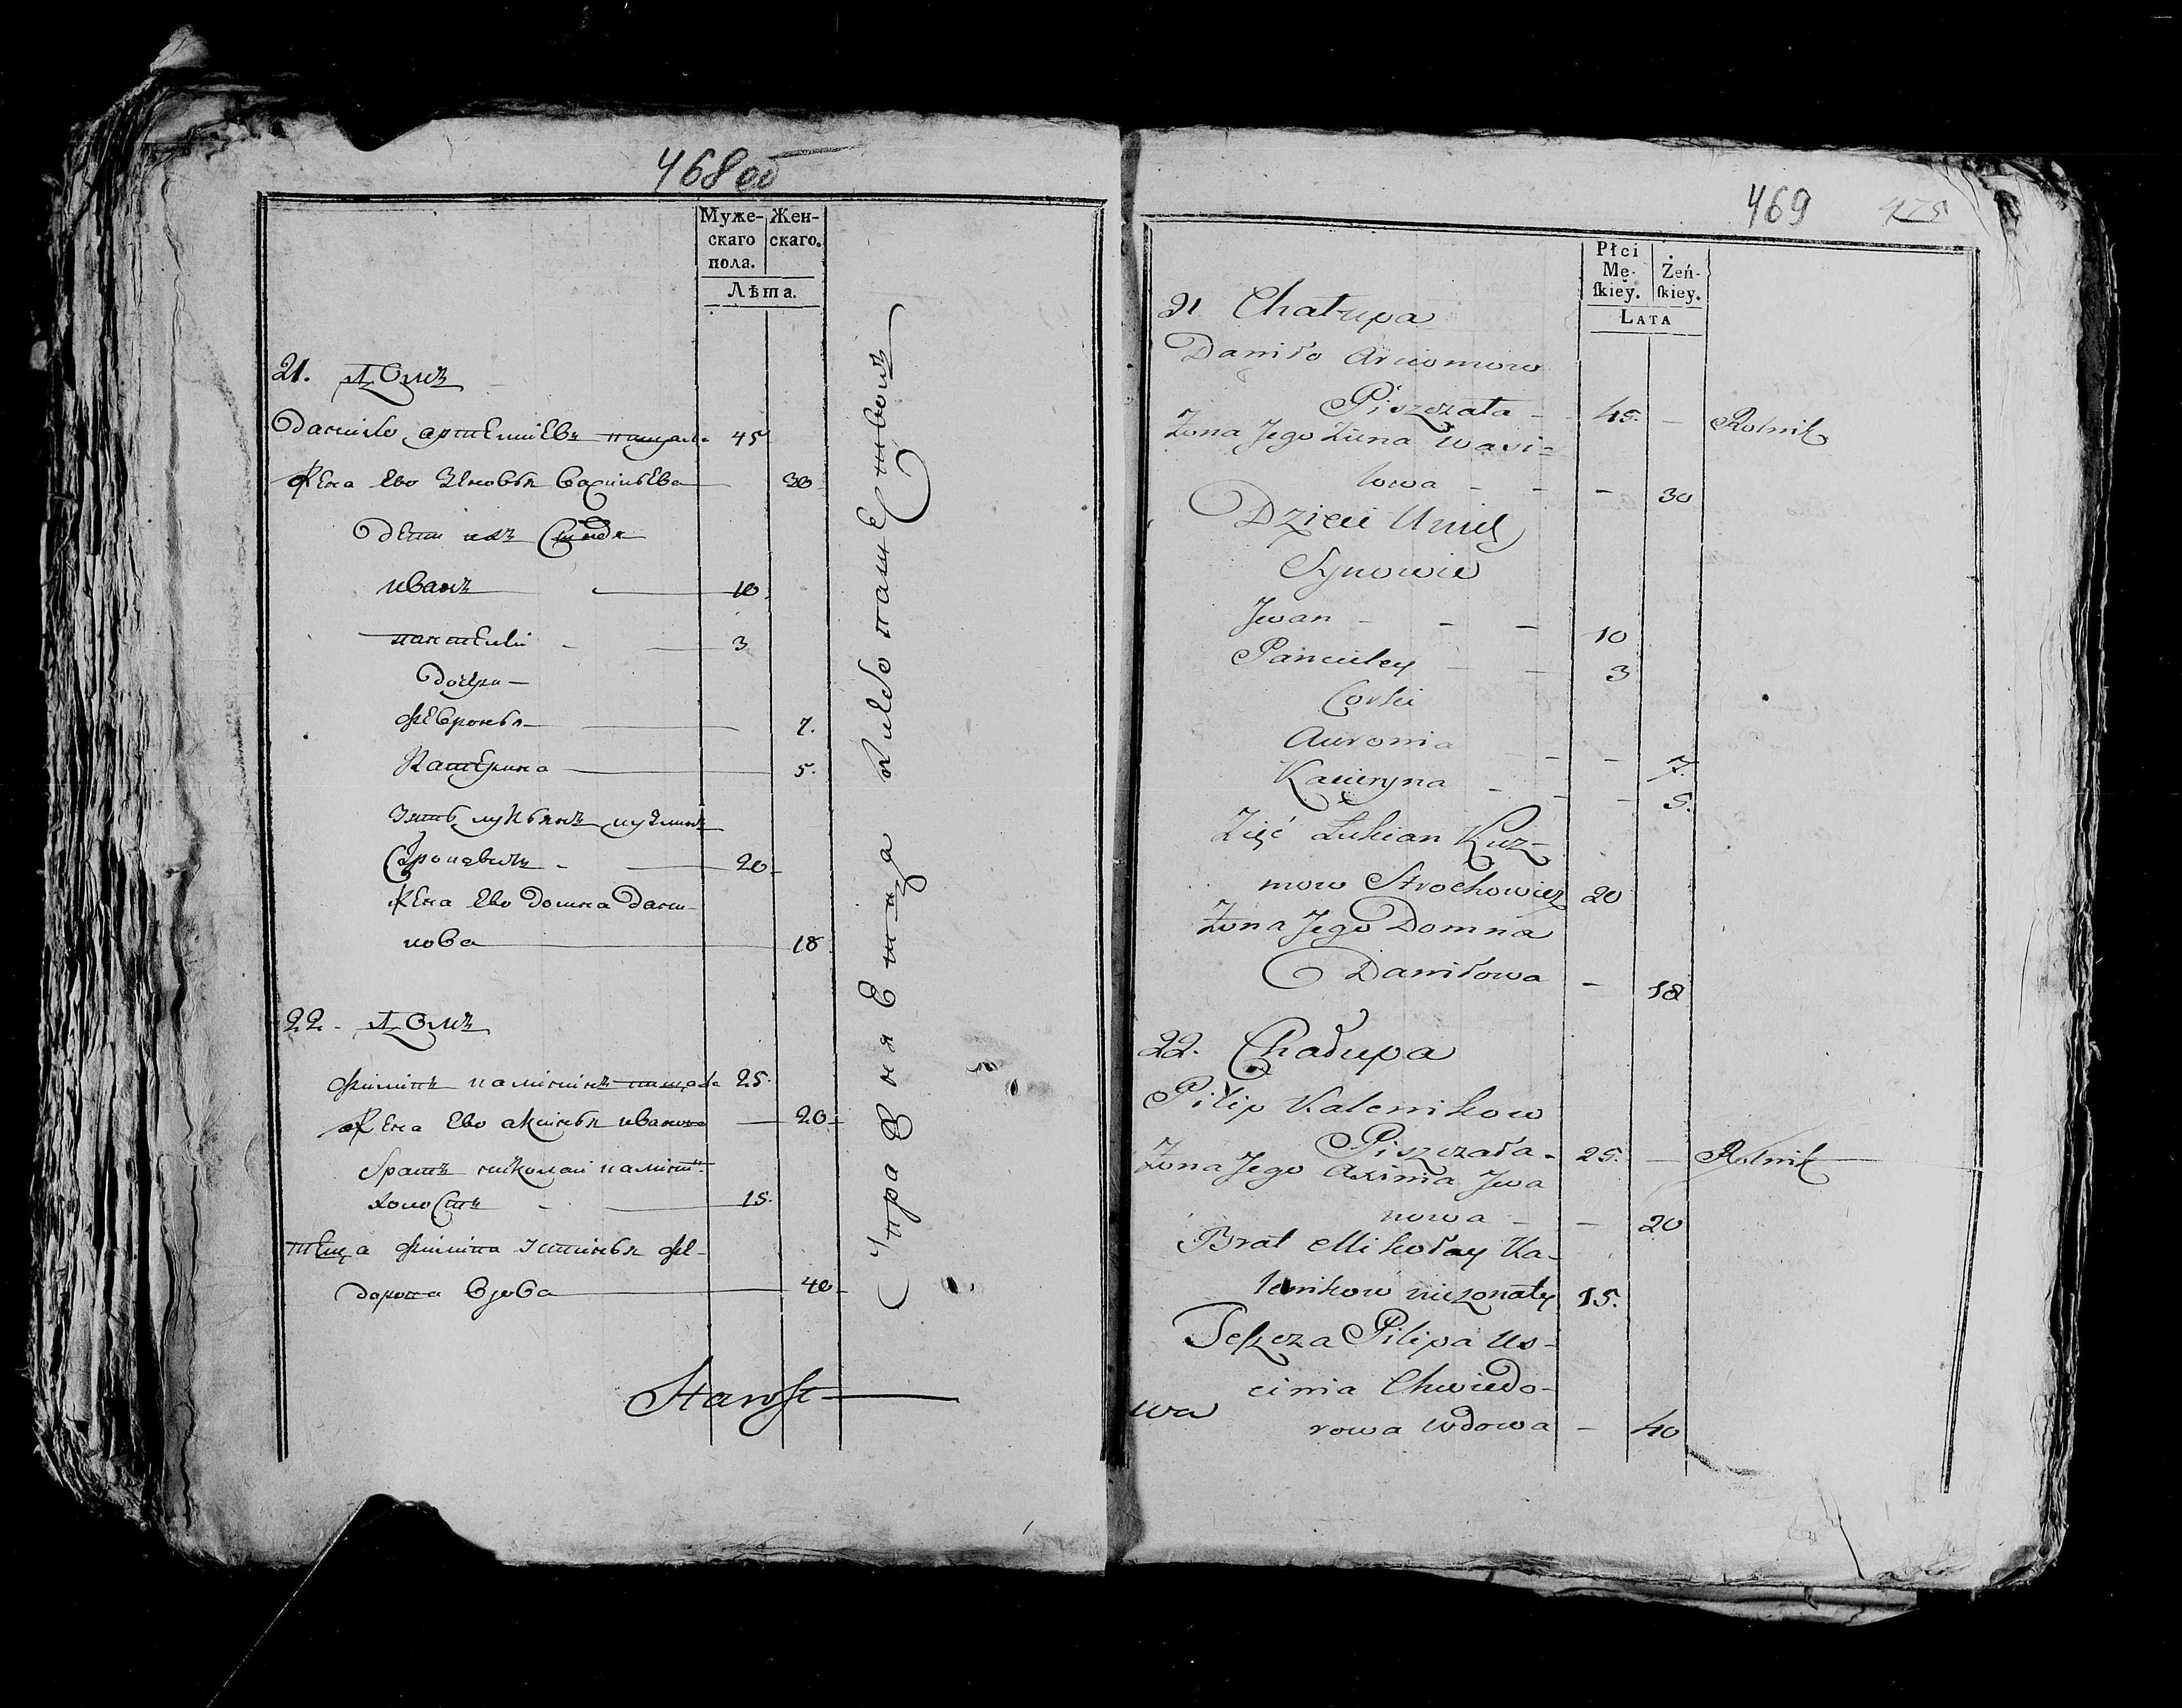 468 об
Муже-
скаго
пола.
Жен-
скаго.
Лѣта.
21. Домъ
Данило артемиевъ пищала 45
жена Ево Зеновья Васильева 30
Дети ихъ Синовя
иванъ 10
пантелей 3
Дочери
февронья 7.
Катерина 5.
Зять лукьянъ кузминъ
20
жена Ево Домна Дани-
лова 18
22. Домъ
филипъ калиникъ пищала 25.
жена Ево аксинья иванова 20
братъ николай
холостъ 15.
теща филипа Устинья фе-
дорова вдова 40
Starost
469
475
Płci
Mę-
skiey.
Żeń-
skiey.
Lata
21 Chałupa
Daniło Arciomow
Piszczała 45. Rolnik
Żona Jego Zina Wasi-
lowa 30
Dzieci Onich
Synowie
Jwan 10
Panciley 3
Corki
Auronia 7.
Kacieryna 5.
Zięć Łukian Kuz-
mow Strochowicz 20
Żona Jego Domna
Daniłowa 18
22. Chałupa
Pilip Kalenikow
Piszczała 25. Rolnik
Żona Jego Axinia Jwa
nowa 20
Brat Mikołay Ka-
lenikow niezonaty 15.
Teszcza Pilipa Us-
cinia Chwiedo-
wa
rowa wdowa 40